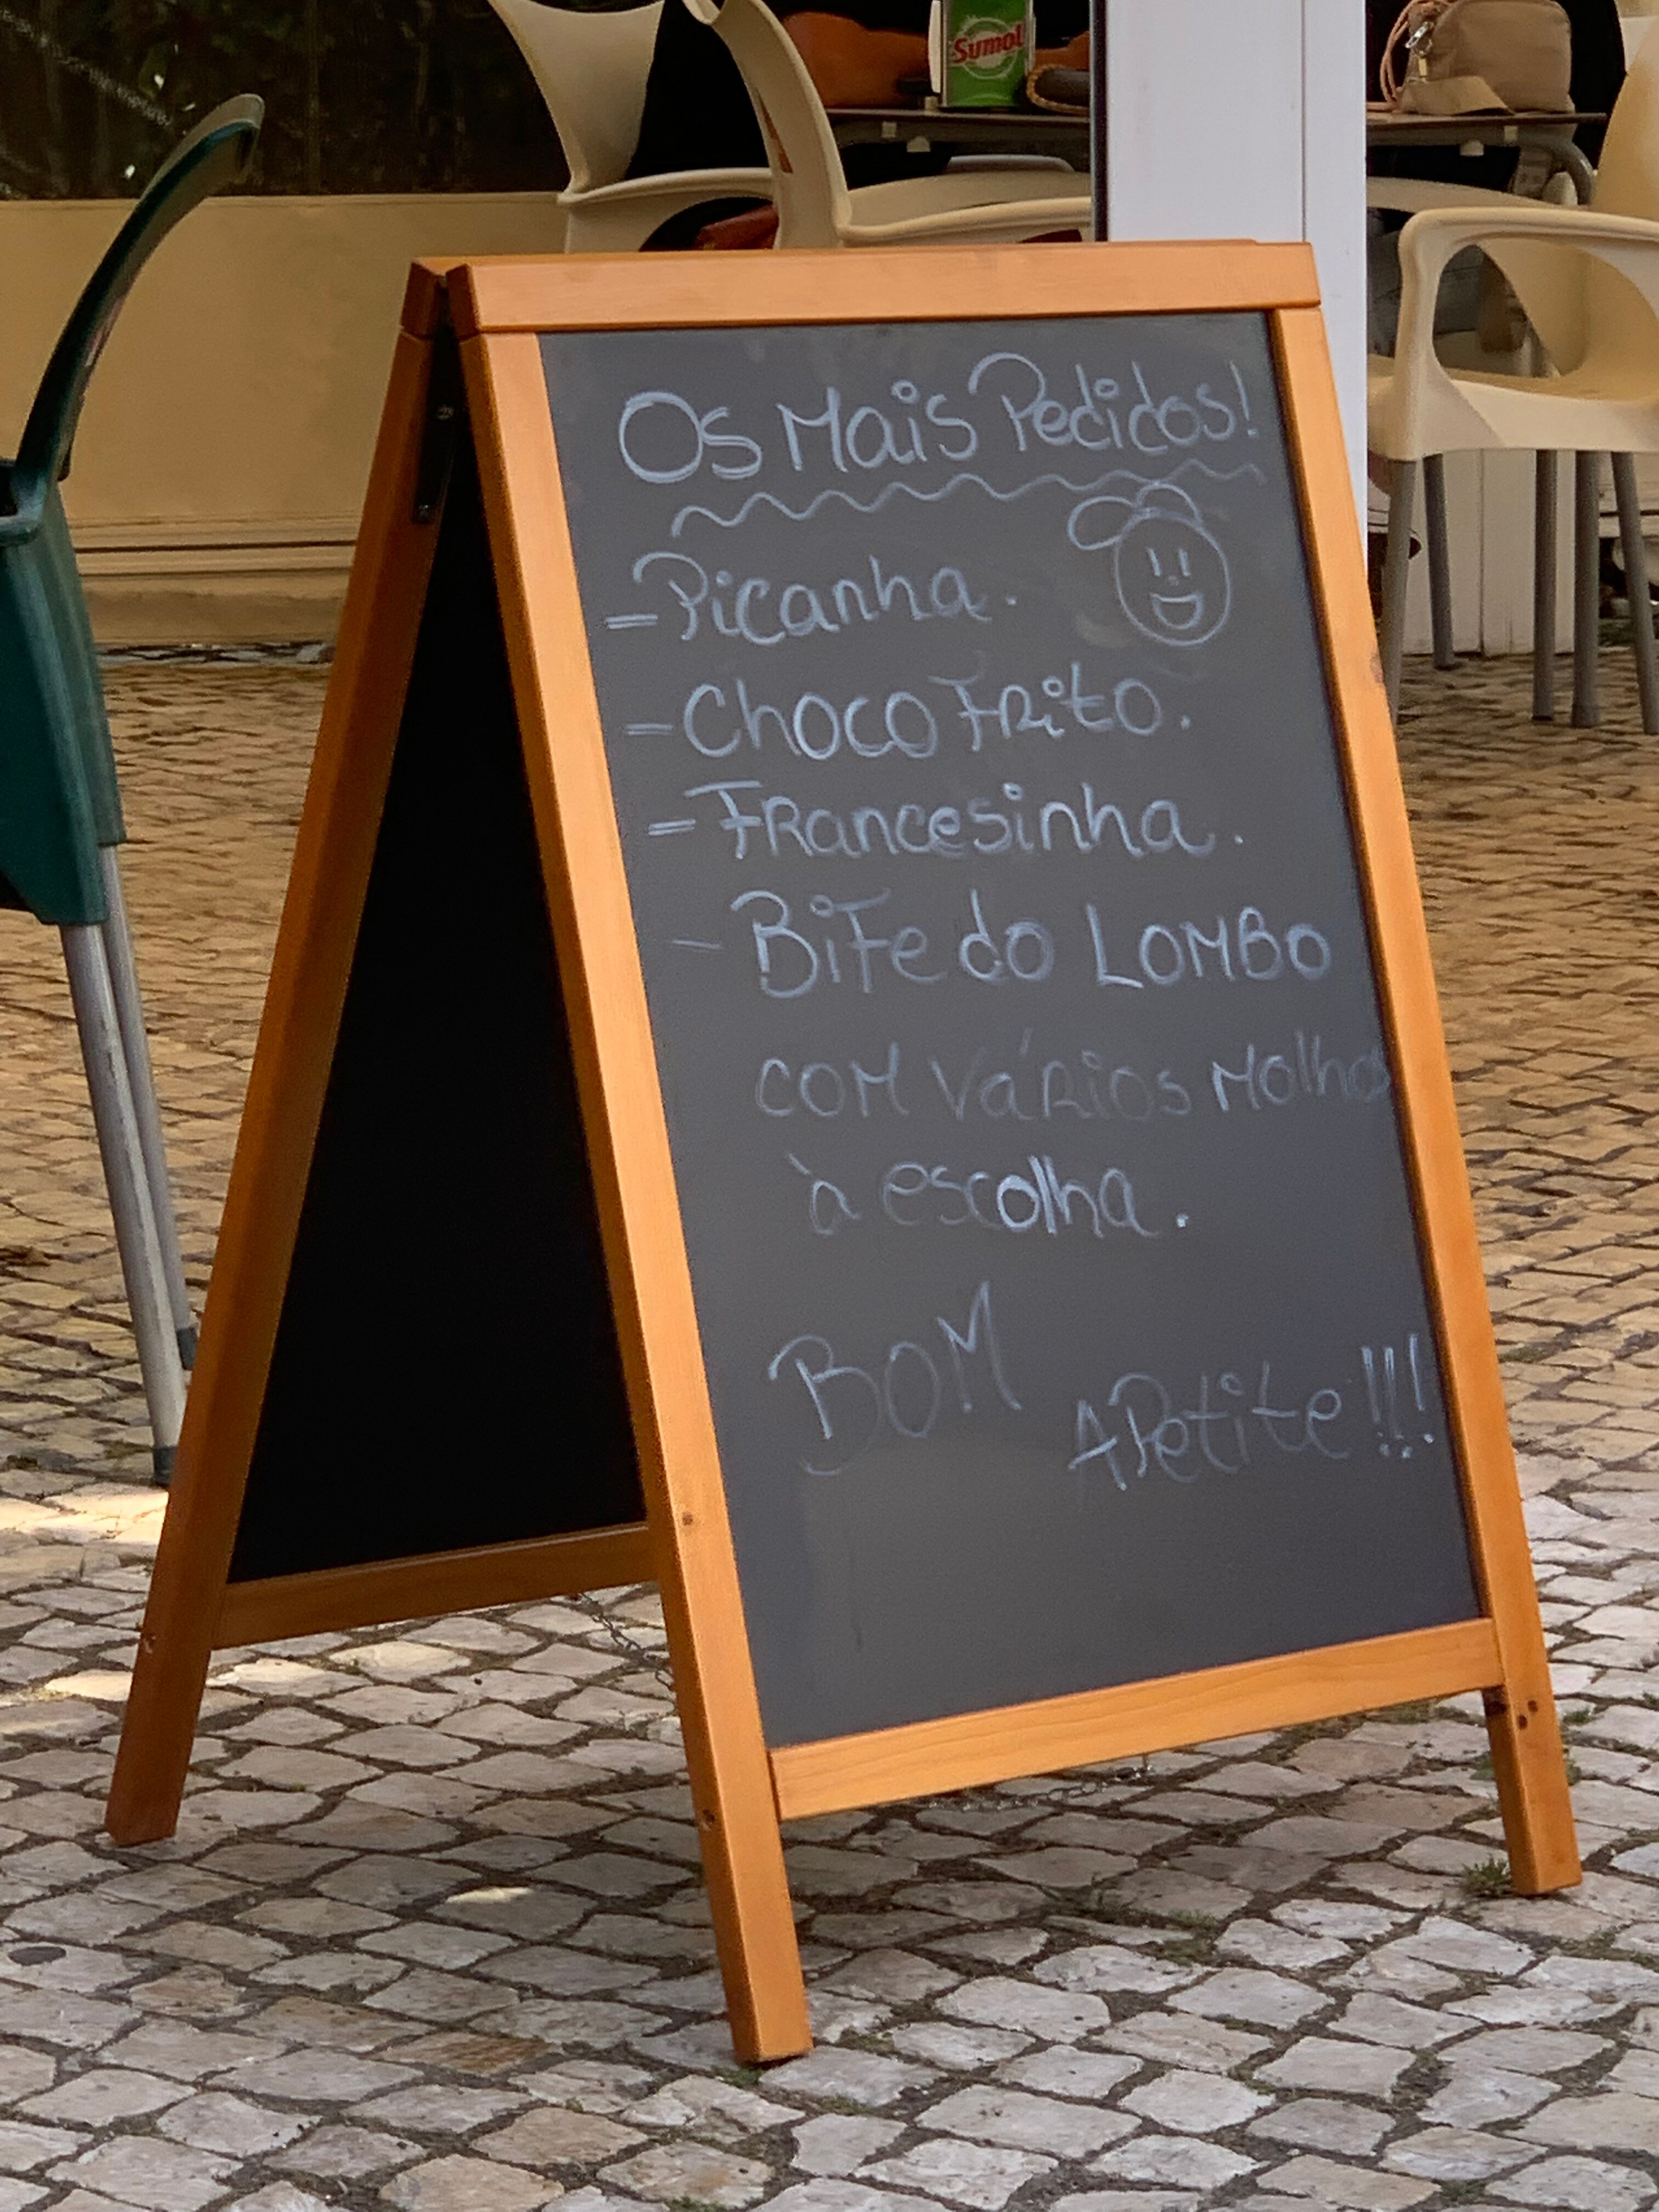 Sumol
Os Mais Pedidos!
= Picanha.
- Choco Frito.
= Francesinha.
- Bife do LOMBO
com vários molhos
à escolha.
BOM
APetite!!!